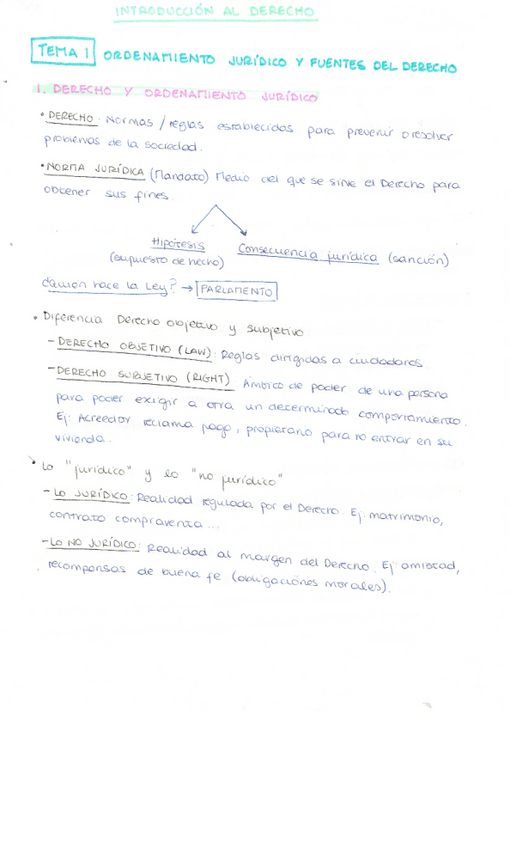 INTRODUCCIÓN AL DERECHO
TEMA 1 ORDENAMIENTO JURÍDICO Y FUENTES DEL DERECHO
1. DERECHO Y ORDENAMIENTO JURÍDICO
• DERECHO: Normas / reglas establecidas para prevenir o resolver
problemas de la sociedad.
• NORMA JURÍDICA (Mandato) Medio del que se sirve el Derecho para
obtener sus fines.
Hipótesis Consecuencia jurídica (sanción)
(supuesto de hecho)
¿Quién hace la Ley? → PARLAMENTO
• Diferencia Derecho objetivo y subjetivo
- DERECHO OBJETIVO (LAW): Reglas dirigidas a ciudadanos
- DERECHO SUBJETIVO (RIGHT) Ámbito de poder de una persona
para poder exigir a otra un determinado comportamiento.
Ej: Acreedor reclama pago, propietario para no entrar en su
vivienda..
• Lo "jurídico" y lo "no jurídico"
- LO JURÍDICO: Realidad regulada por el Derecho. Ej: matrimonio,
contrato compraventa ...
- LO NO JURÍDICO: Realidad al margen del Derecho. Ej: amistad,
recompensas de buena fe (obligaciones morales).